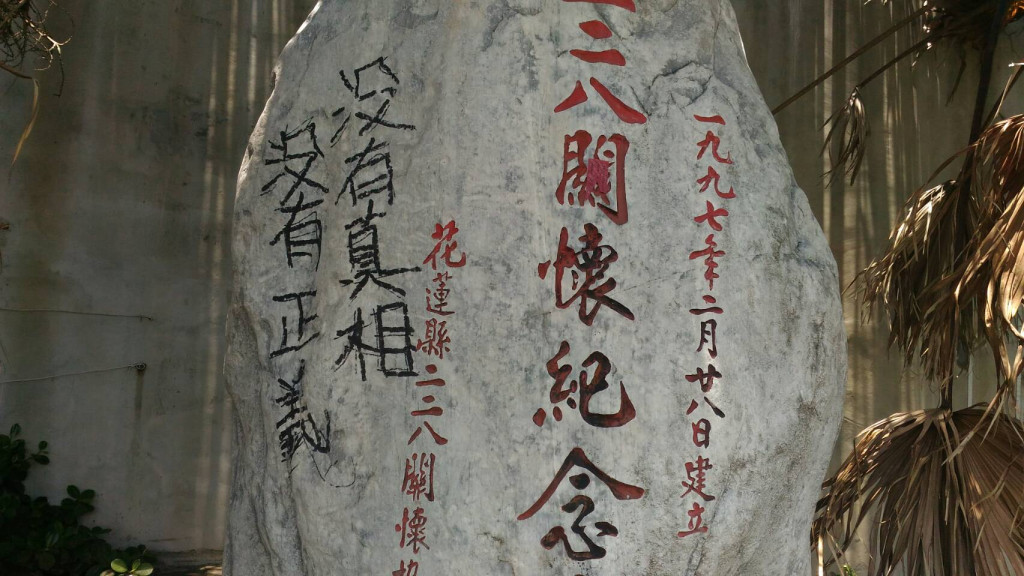 一九九七年二月廿八日建立
二二八關懷紀念
花蓮縣二二八關懷協
沒有真相
沒有正義